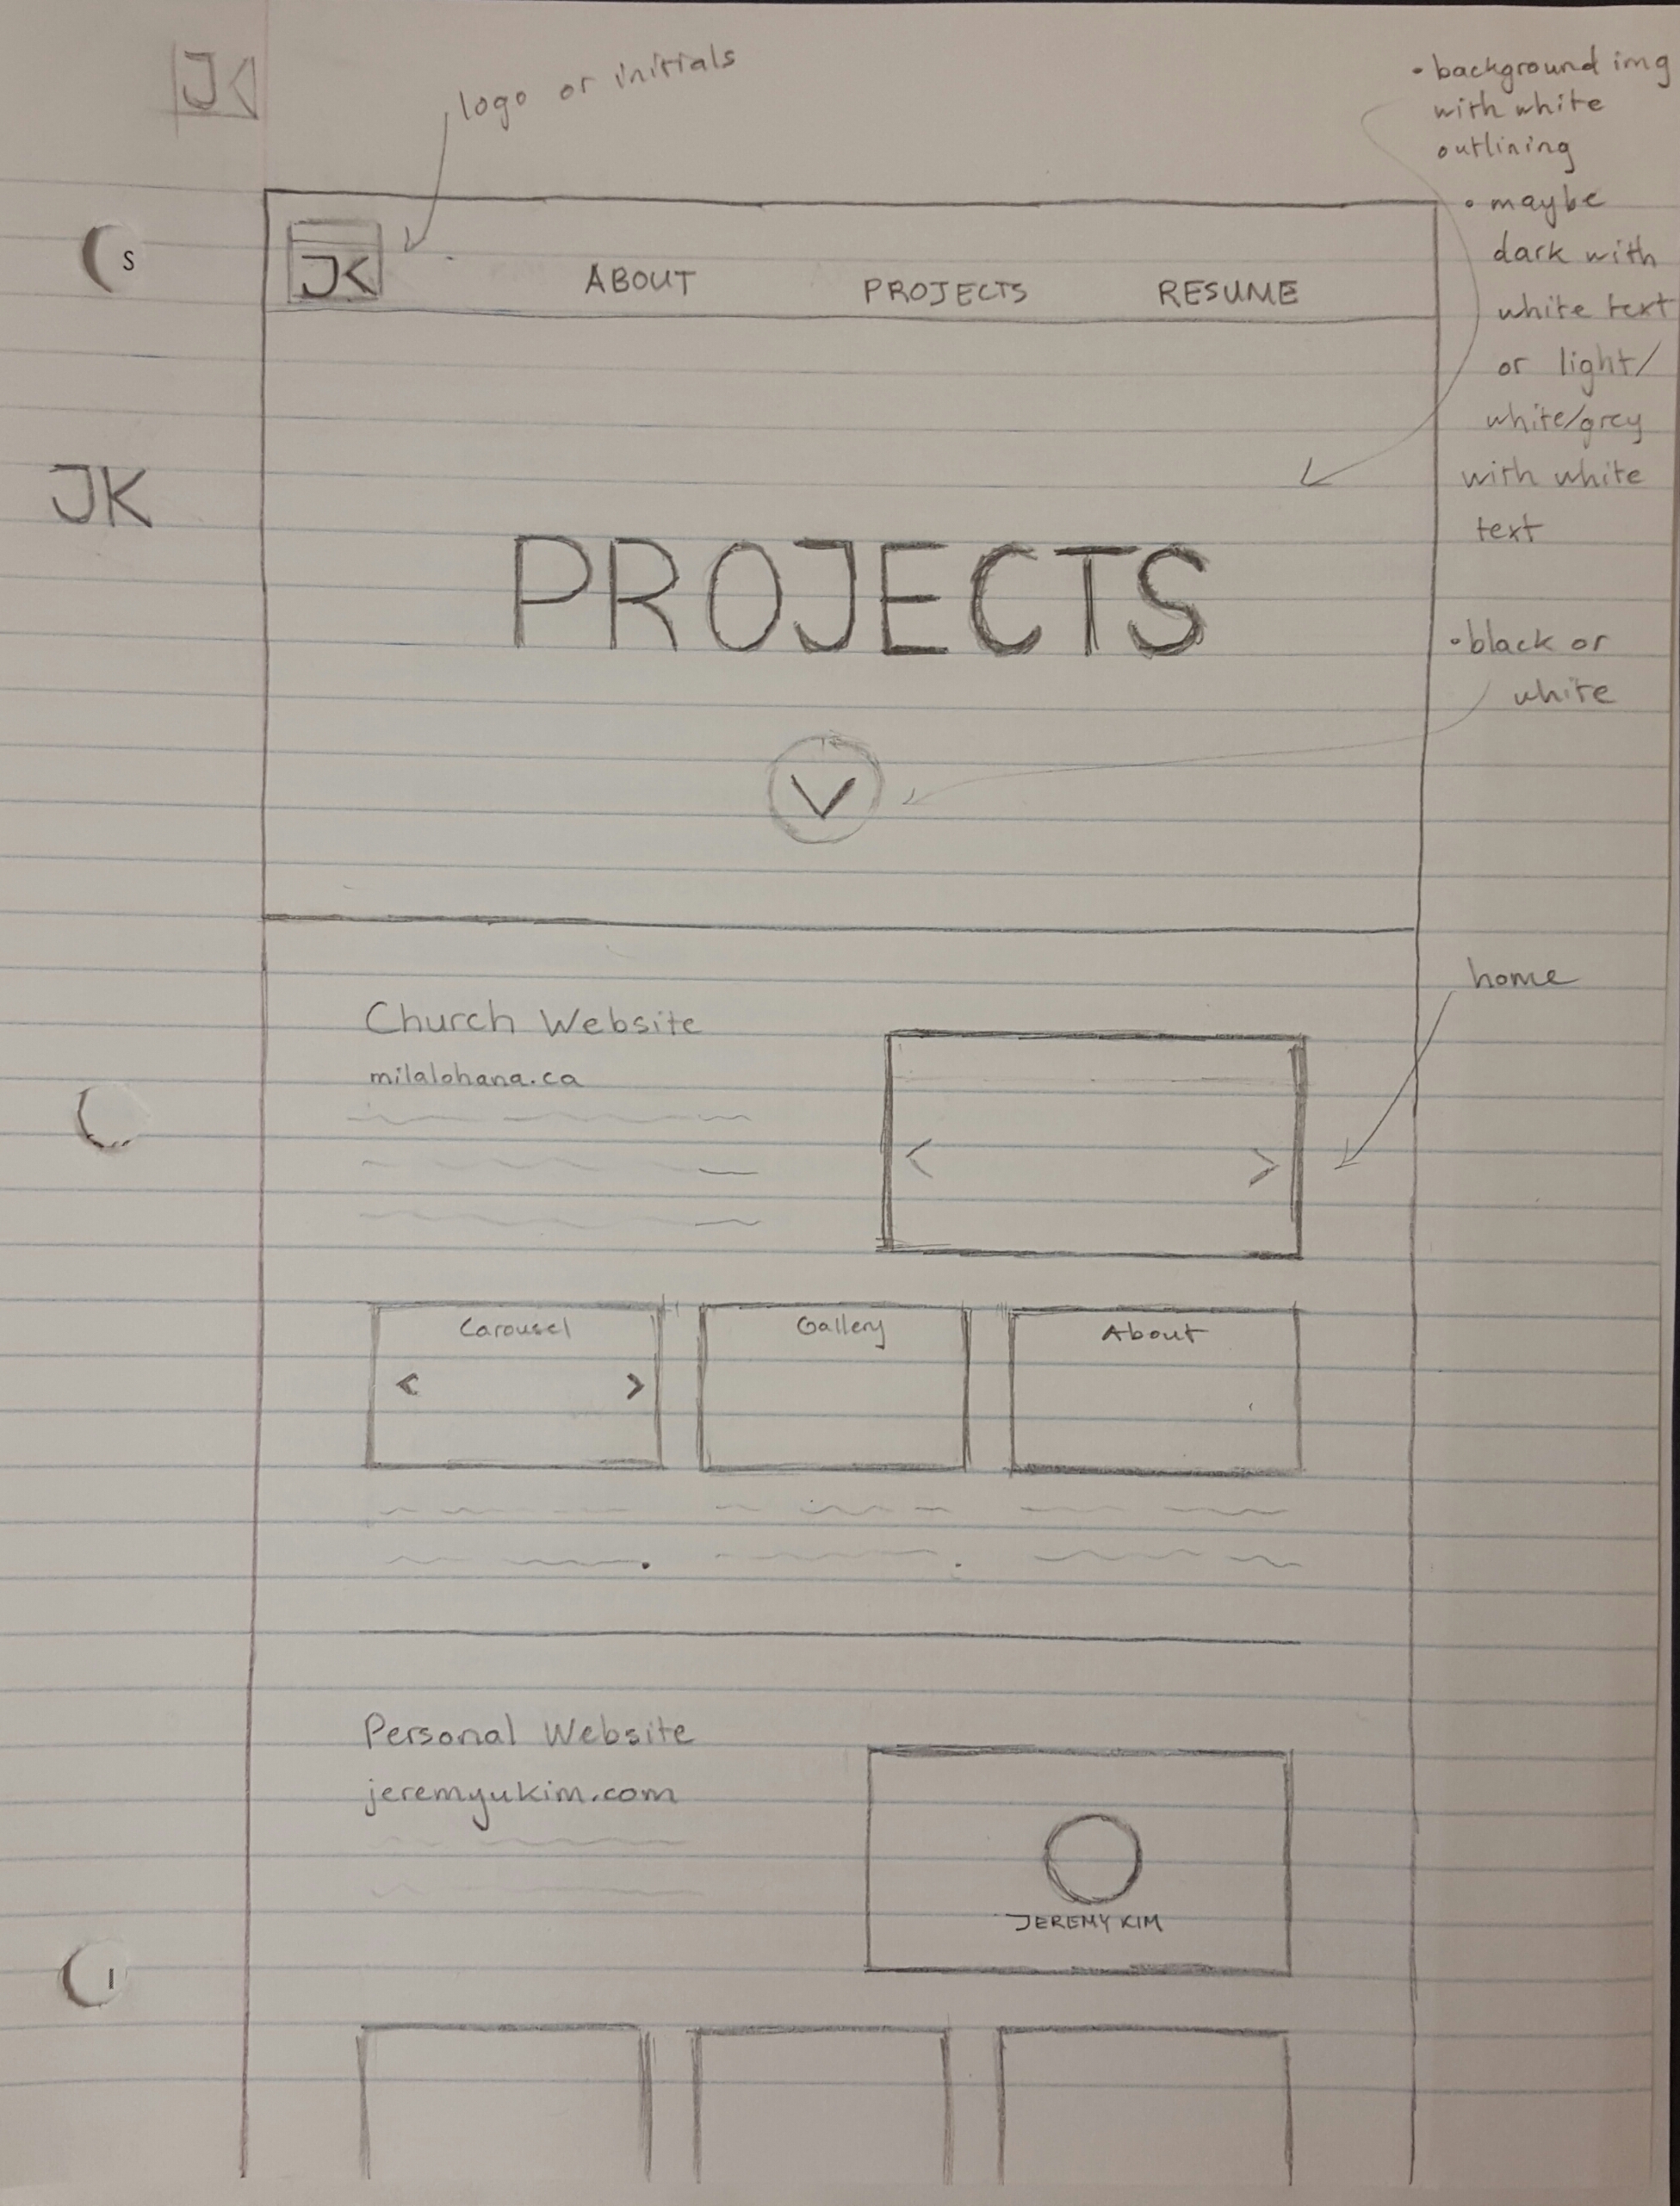 JK
logo or initials
• background img
with white
outlining
• maybe
dark with
white text
or light/
white/grey
with white
text
JK
ABOUT PROJECTS RESUME
JK
PROJECTS
• black or
white
V
home
Church Website
milalohana.ca
< >
Carousel Gallery About
< >
Personal Website
jeremyukim.com
JEREMY KIM
S
I